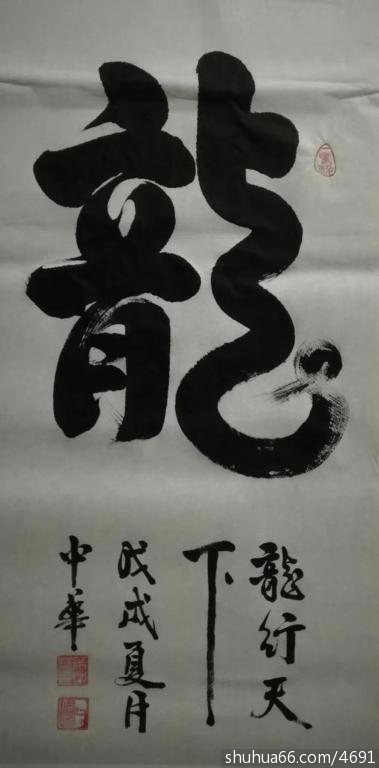 龍
龍行天
下
戊戌夏月
中華
shuhua66.com/4691